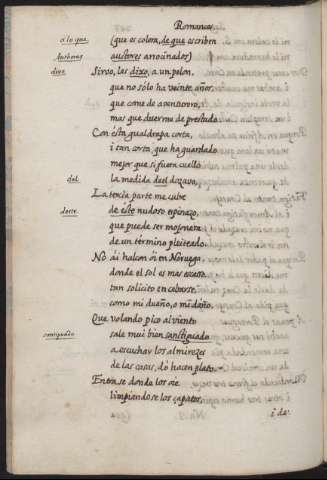 Romances.
a lo que. (que es colora, de que escriben
Autores autores arrocinados)
dize Sirvo, les dixo, a un pelon,
que no sólo ha veinte años
que come de
mas que duerme de prestado.
Con esta gualdrapa corta,
i tan corta, que ha guardado
mejor que si fuera cuello
del. la medida del dozavo.
La tercia parte me cubre
deste. de este nudoso espinazo,
que puede ser mojonera
de un término pleiteado.
No ái halcon ói en Noruega
donde el sol es mas escaso
tan solícito en cebarse
como mi dueño, o mi daño.
Que volando pico al viento
santiguado sale mui bien santiguado
a escuchar los almirezes
de las casas, dó hacen plato.
Entrase donde los oie
limpiandose los çapatos,
i de